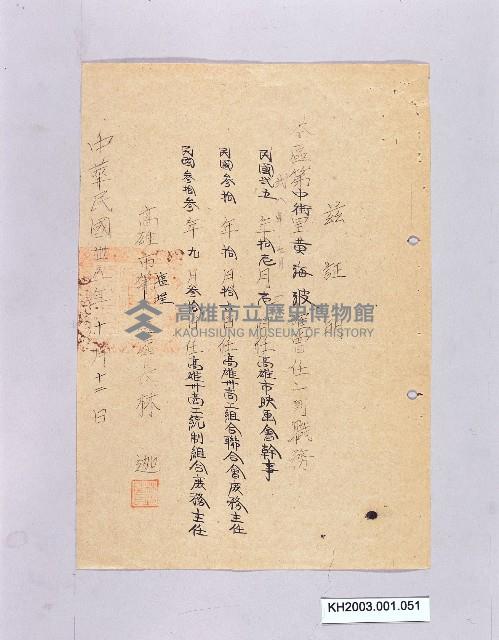 茲証明
本區第中街里黃海波確曾任一司職務
民國弍五年拾壱月壱日任高雄市映画會幹事
民國叁拾年拾月拾日任高雄州商工組合聯合會庶務主任
民國叁拾叁年九月叁拾日任高雄州商工統制組合庶務主任
高雄市鹽埕區長林 迦
中華民國卅五年十月十二日
高雄市立歷史博物館
KAOHSIUNG MUSEUM OF HISTORY
KH2003.001.051